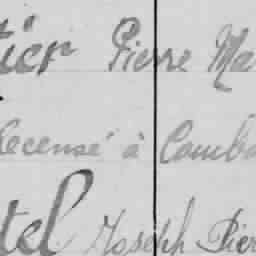 tier Pierre Ma
Recensé à Combo
tel Joseph Pier